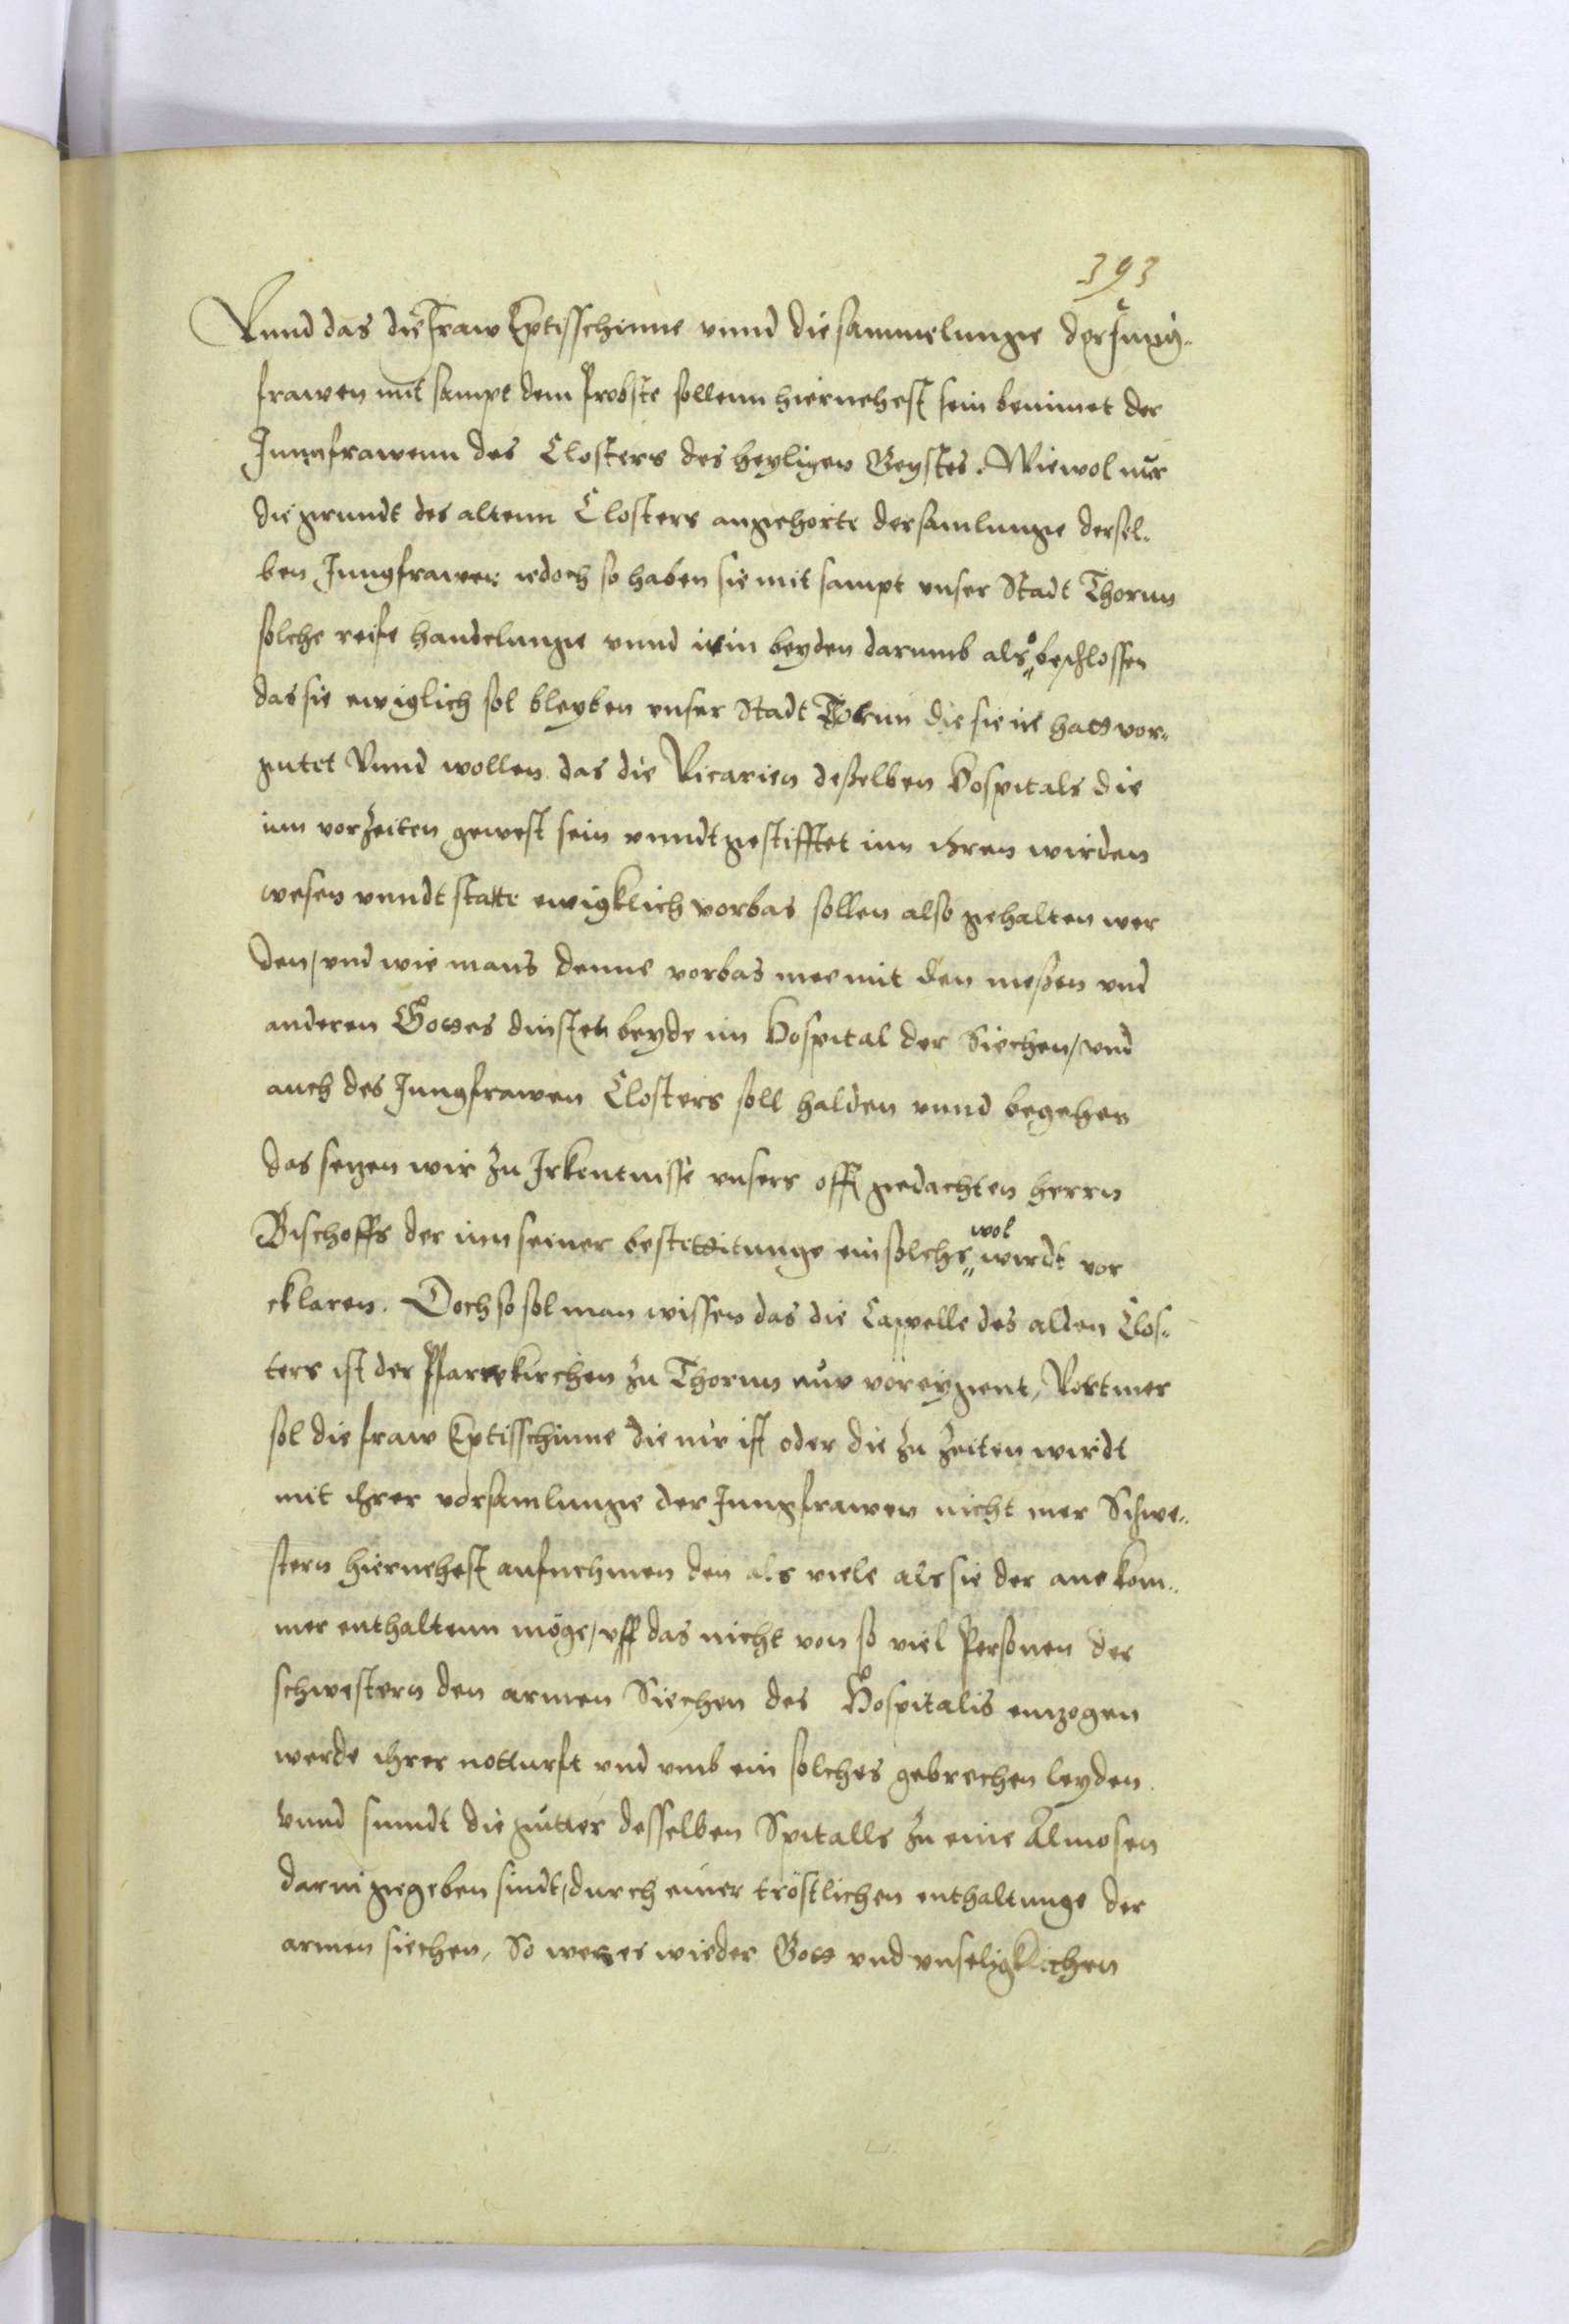 393
Vnnd das die fraw Eptisschinne vnnd die sammelunge der Jung-
frawen mit sampt dem Probste sollenn hiernehest sein benimet der
Jungfrawenn des Closters des heyligen Geystes. Wiewol nur
die grundt des altenn Closters angehorte der samlunge dersel-
ben Jungfrawen iedoch so haben sie mit sampt vnser Stadt Thorun
solche reife handelunge vnnd in beyden darumb also beschlossen
das sie ewiglich sol bleyben vnser Stadt Torun die sie in hatt vor-
gutet Vnnd wollen das die Vicarien deßelben Hospitals die
inn vorzeiten gewest sein vnndt gestifftet inn ihren wirden
wesen vnndt statte ewigklich vorbas sollen also gehalten wer
den, vnd wie mans denne vorbas mee mit den meßen vnd
anderen Gottes dinsten beyde im Hospital der Siechen, vnd
auch des Jungfrawen Closters soll halden vnnd begehen
das setzen wir zu Irkentnisse vnsers offt gedachten herrn
Bischoffs der inn seiner bestettitunge ein solchs wol wirdt vor
cklaren. Doch so sol man wissen das die Cappelle des alden Clos-
ters ist der Pfarrkirchen zu Thorun nuw voreygent, Vortmer
sol die fraw Eptisschinne die nur ist oder die zu zeiten wirdt
mit ihrer vorsamlunge der Jungfrawen nicht mer Schwe-
stern hiernehest aufnehmen den als viele als sie der ane kom-
mer enthaltenn möge, vff das nicht von so viel Personen der
schwestern den armen Siechen des Hospitalis emzogen
werde ihrer notturft vnd vmb ein solches gebrechen leyden.
Vnnd sinndt die gütter desselben Spitalls zu eine Almosen
darin gegeben sindt, durch einer tröstlichen enthaltunge der
armen siechen, So wer es wieder Gott vnd vnseligklichen